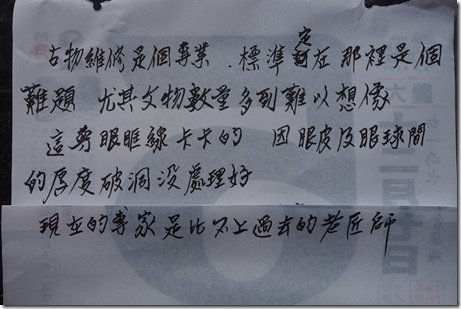 古物維修是個專業.標準定在那裡是個
難題 尤其文物數量多到難以想像
這尊眼眶線卡卡的 因眼皮及眼球間
的厚度破洞沒處理好
現在的專家是比不上過去的老匠師